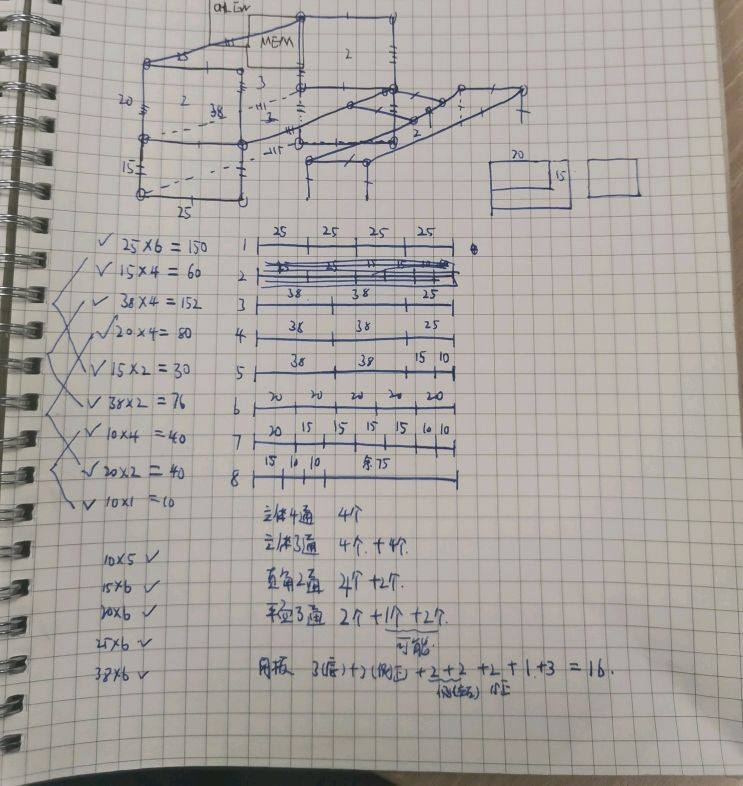 MEM
25
20
2
38
3
3
2
2
15
25
20
15
✓ 25×6=150
✓ 15×4=60
✓ 38×4=152
✓ 20×4=80
✓ 15×2=30
✓ 38×2=76
✓ 10×4=40
✓ 20×2=40
✓ 10×1=10
10×5 ✓
15×6 ✓
20×6 ✓
25×6 ✓
38×6 ✓
1 25 25 25 25
2
3 38 38 25
4 38 38 25
5 38 38 15 10
6 20 20 20 20 20
7 20 15 15 15 15 10 10
8 15 10 10 余75
立体4通 4个
立体3通 4个+4个.
直角2通 2个+2个.
平面3通 2个+1个+2个.
可能.
网板 3(底)+2(侧正)+2+2+2+1+3=16.